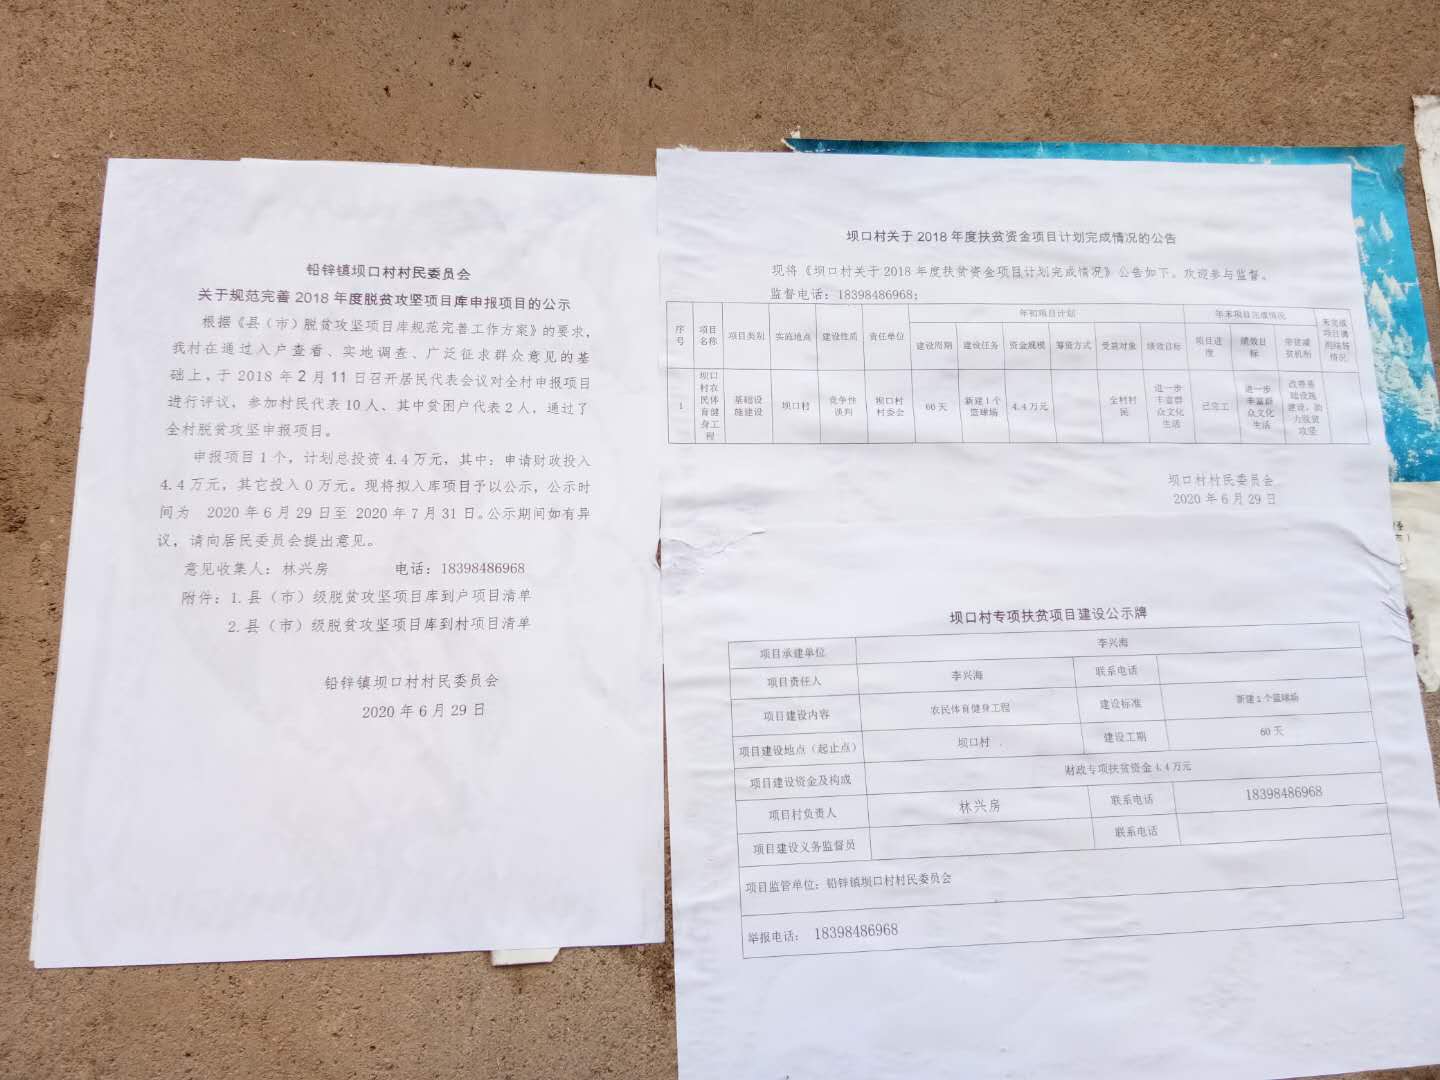 铅锌镇坝口村村民委员会
关于规范完善 2018 年度脱贫攻坚项目库申报项目的公示
根据《县（市）脱贫攻坚项目库规范完善工作方案》的要求，
我村在通过入户查看、实地调查、广泛征求群众意见的基
础上，于 2018 年 2 月 11 日召开居民代表会议对全村申报项目
进行评议，参加村民代表 10 人、其中贫困户代表 2 人，通过了
全村脱贫攻坚申报项目。
申报项目 1 个，计划总投资 4.4 万元，其中：申请财政投入
4.4 万元，其它投入 0 万元。现将拟入库项目予以公示，公示时
间为 2020 年 6 月 29 日至 2020 年 7 月 31 日。公示期间如有异
议，请向居民委员会提出意见。
意见收集人：林兴房 电话：18398486968
附件：1. 县（市）级脱贫攻坚项目库到户项目清单
2. 县（市）级脱贫攻坚项目库到村项目清单
铅锌镇坝口村村民委员会
2020 年 6 月 29 日
坝口村关于 2018 年度扶贫资金项目计划完成情况的公告
现将《坝口村关于 2018 年度扶贫资金项目计划完成情况》公告如下。欢迎参与监督。
监督电话：18398486968；
序号 项目名称 项目类别 实施地点 建设性质 责任单位 年初项目计划 年末项目完成情况 未完成项目调明细等情况
建设周期 建设任务 资金规模 筹资方式 受益对象 绩效目标 项目进度 绩效目标 带贫减贫机制
1 坝口村农民体育健身工程 基础设施建设 坝口村 竞争性谈判 坝口村村委会 60 天 新建 1 个篮球场 4.4 万元 全村村民 进一步丰富群众文化生活 已完工 进一步丰富群众文化生活 改善基础设施建设，助力脱贫攻坚
坝口村村民委员会
2020 年 6 月 29 日
坝口村专项扶贫项目建设公示牌
项目承建单位 李兴海
项目责任人 李兴海 联系电话
项目建设内容 农民体育健身工程 建设标准 新建 1 个篮球场
项目建设地点（起止点） 坝口村 建设工期 60 天
项目建设资金及构成 财政专项扶贫资金 4.4 万元
项目村负责人 林兴房 联系电话 18398486968
项目建设义务监督员 联系电话
项目监管单位：铅锌镇坝口村村民委员会
举报电话： 18398486968